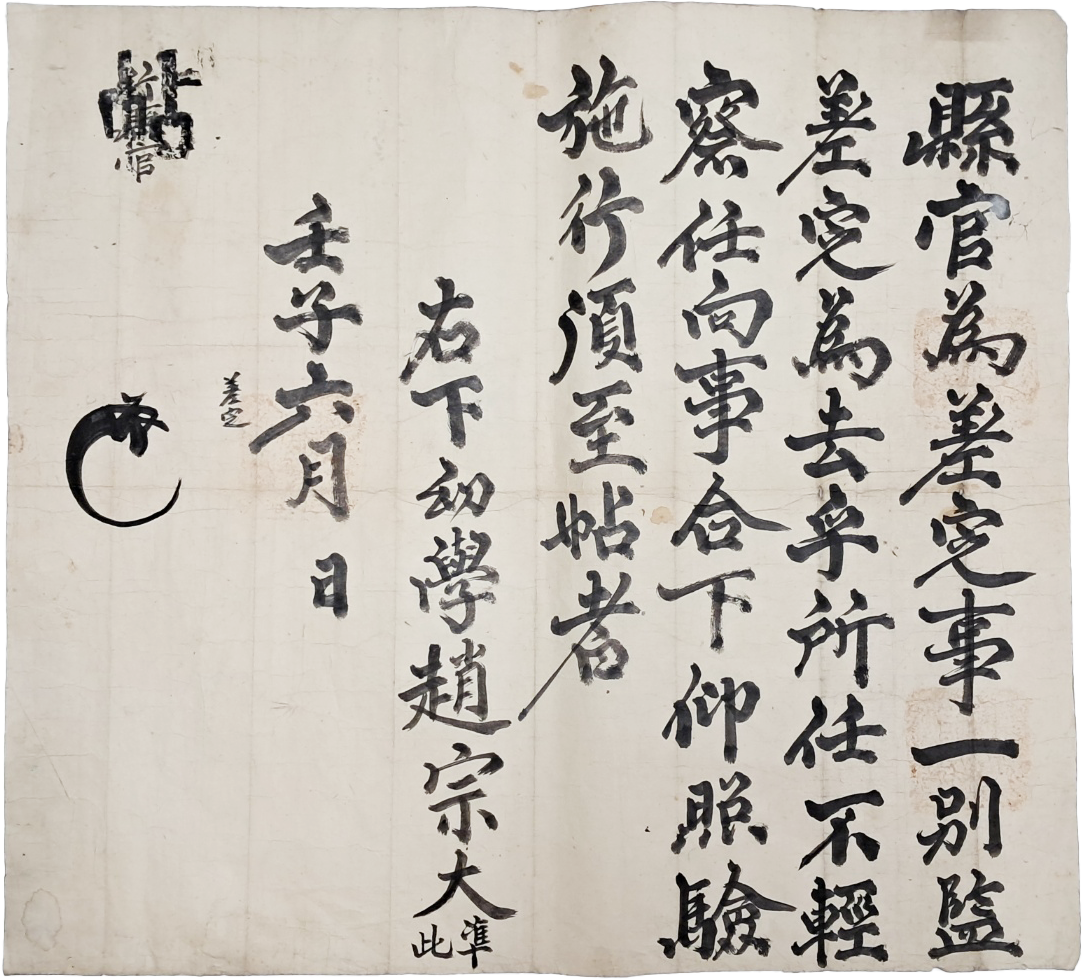 縣官為差定事一別監
差定為去乎所任不輕
察任向事合下仰照驗
施行須至帖者
右下幼學趙宗大準此
壬子六月日
差定
帖
行縣官